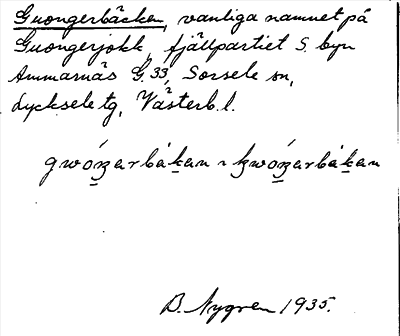 Guongerbäcken, vanliga namnet på
Guongerjokk, fjällpartiet S. byn
Ammarnäs G. 33, Sorsele sn,
Lycksele tg, Västerb. l.
D. Nygren 1935.